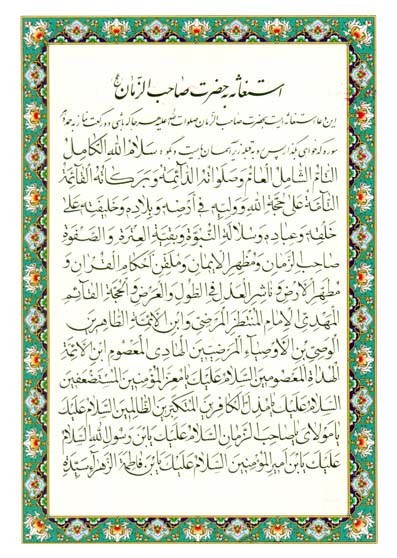 استغاثه به حضرت صاحب الزمان
این دعا استغاثه ایست بحضرت صاحب الزمان صلوات الله علیه هر جا که باشی دو رکعت نماز به حمد و هر
سوره که خواهی بگذار پس رو بقبله زیر آسمان بایست و بگو: سَلَامُ اللهِ الْكَامِلُ
التَّامُّ الشَّامِلُ الْعَامُّ وَصَلَوَاتُهُ الدَّائِمَةُ وَبَرَكَاتُهُ الْقَائِمَةُ
التَّامَّةُ عَلَى حُجَّةِ اللهِ وَوَلِيِّهِ فِي أَرْضِهِ وَبِلَادِهِ وَخَلِيفَتِهِ عَلَى
خَلْقِهِ وَعِبَادِهِ وَسُلَالَةِ النُّبُوَّةِ وَبَقِيَّةِ الْعِتْرَةِ وَالصَّفْوَةِ
صَاحِبِ الزَّمَانِ وَمُظْهِرِ الْإِيمَانِ وَمُلَقِّنِ أَحْكَامِ الْقُرْآنِ وَ
مُطَهِّرِ الْأَرْضِ وَنَاشِرِ الْعَدْلِ فِي الطُّولِ وَالْعَرْضِ وَالْحُجَّةِ الْقَائِمِ
الْمَهْدِيِّ الْإِمَامِ الْمُنْتَظَرِ الْمَرْضِيِّ وَابْنِ الْأَئِمَّةِ الطَّاهِرِينَ
الْوَصِيِّ بْنِ الْأَوْصِيَاءِ الْمَرْضِيِّينَ الْهَادِي الْمَعْصُومِ ابْنِ الْأَئِمَّةِ
الْهُدَاةِ الْمَعْصُومِينَ السَّلَامُ عَلَيْكَ يَا مُعِزَّ الْمُؤْمِنِينَ الْمُسْتَضْعَفِينَ
السَّلَامُ عَلَيْكَ يَا مُذِلَّ الْكَافِرِينَ الْمُتَكَبِّرِينَ الظَّالِمِينَ السَّلَامُ عَلَيْكَ
يَا مَوْلَايَ يَا صَاحِبَ الزَّمَانِ السَّلَامُ عَلَيْكَ يَا بْنَ رَسُولِ اللهِ السَّلَامُ
عَلَيْكَ يَا بْنَ أَمِيرِ الْمُؤْمِنِينَ السَّلَامُ عَلَيْكَ يَا بْنَ فَاطِمَةَ الزَّهْرَاءِ سَيِّدَةِ